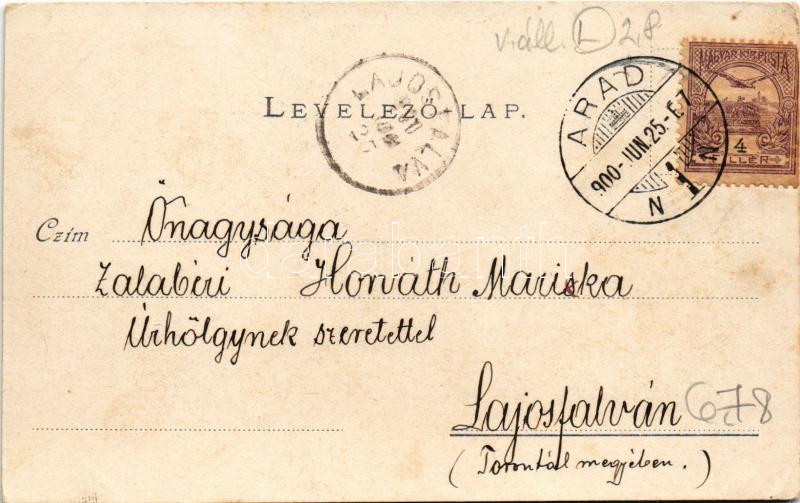 v.áll. L 28
LEVELEZŐ LAP.
LAJOSFALVA
ARAD
900 JUN. 25. E7
N N
MAGYAR KIR. POSTA
4
FILLÉR
Czím Őnagysága
Zalabéri Horváth Mariska
Úrhölgynek szeretettel
Lajosfalván
678
(Torontál megyében.)
darabanth